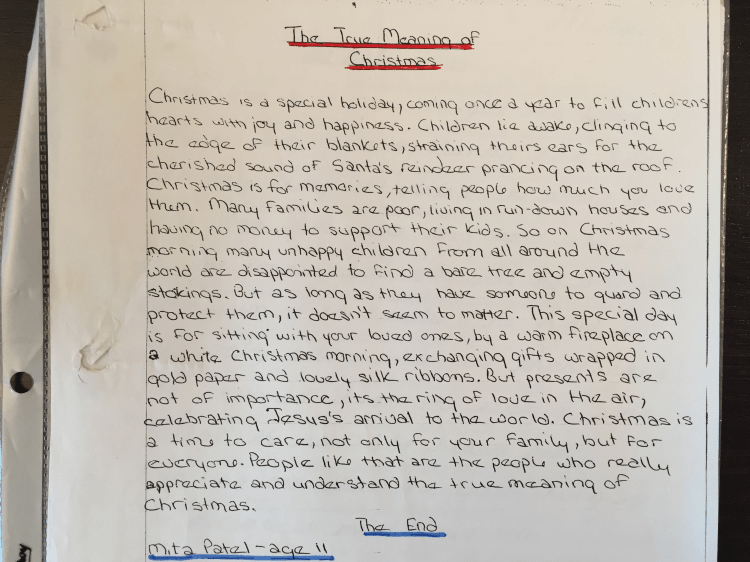 The True Meaning of
Christmas
Christmas is a special holiday, coming once a year to fill childrens
hearts with joy and happiness. Children lie awake, clinging to
the edge of their blankets, straining theirs ears for the
cherished sound of Santa's reindeer prancing on the roof.
Christmas is for memories, telling people how much you love
them. Many families are poor, living in run-down houses and
having no money to support their kids. So on Christmas
morning many unhappy children from all around the
world are disappointed to find a bare tree and empty
stokings. But as long as they have someone to guard and
protect them, it doesn't seem to matter. This special day
is for sitting with your loved ones, by a warm fireplace on
a white Christmas morning, exchanging gifts wrapped in
gold paper and lovely silk ribbons. But presents are
not of importance, its the ring of love in the air,
celebrating Jesus's arrival to the world. Christmas is
a time to care, not only for your family, but for
everyone. People like that are the people who really
appreciate and understand the true meaning of
Christmas.
The End
Mita Patel - age 11